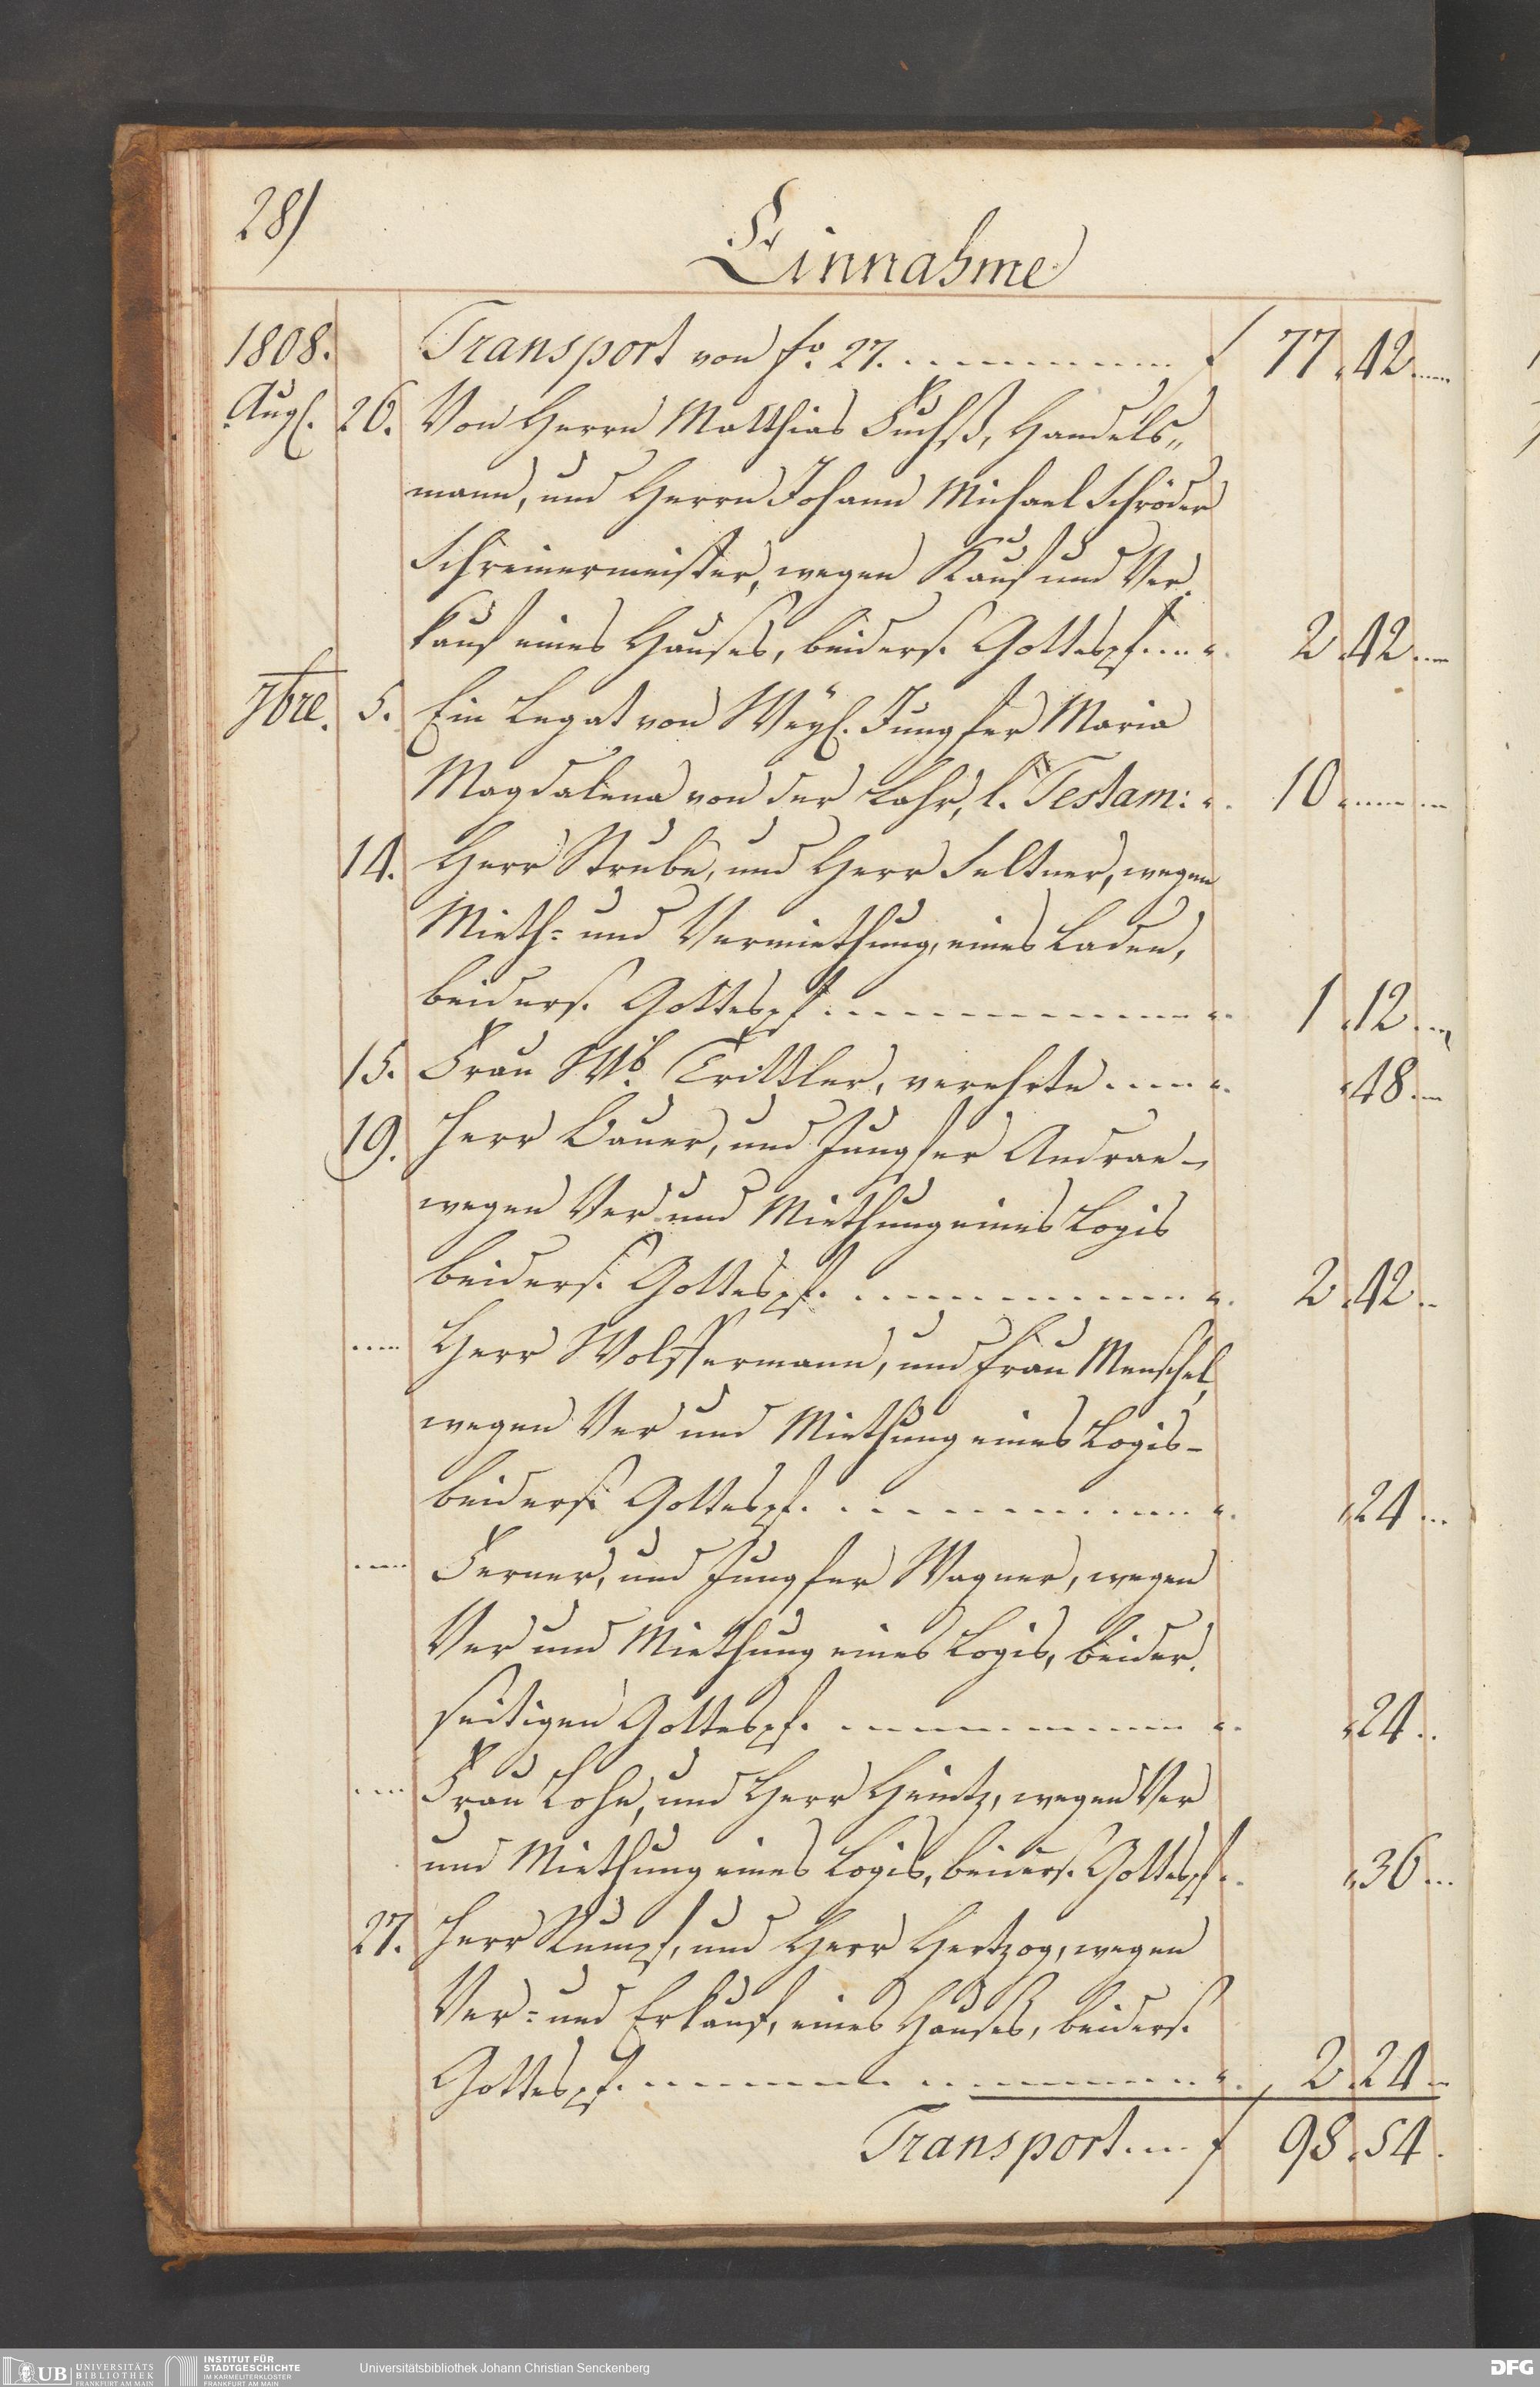 28)
Einnahme
1808. Transport von fo. 27. . . . . . . . . f 77 . 42 . . .
Augs. 26. Von Herrn Matthias Fuchß, Handels„
mann, und Herrn Johann Michael Schröder
Schreinermeister, wegen Kauf und Ver
kauf eines Hauses, beiders. Gottespf. . . . ". 2 . 42 . . .
7bre. 5. Ein Legat von Weyl. Jungfer Maria
Magdalena von der Lahr, l. Testam: ". 10 . . . . .
14. Herr Strube, und Herr Feltner, wegen
Mieth= und Vermiethung, eines Laden,
beiders. Gottespf. . . . . . . . . ". 1 . 12 . . .
15. Frau Wb. Trittler, verehrte . . . . ". "48 . . .
19. Herr Bauer, und Jungfer Andrae -
wegen Ver und Miethung eines Logis
beiders. Gottespf. . . . . . . . . ". 2 . 42 . .
. . . . Herr Wolffermann, und Frau Menschel,
wegen Ver und Miethung eines Logis -
beiders. Gottespf. . . . . . . . . ". "24 . . .
. . . . Ferner, und Jungfer Wagner, wegen
Ver und Miethung eines Logis, beider,
seitigen Gottespf. . . . . . . . . ". "24 . .
. . . . Frau Lohe, und Herr Heintz, wegen Ver
und Miethung eines Logis, beiders. Gottespf. . . "36 . . .
27. Herr Rumpf, und Herr Hertzog, wegen
Ver= und Erkauf, eines Hauses, beiders.
Gottespf. . . . . . . . . . . . ". 2 . 24 . .
Transport . . . f 98 . 54 .
UB
UNIVERSITÄTS
BIBLIOTHEK
FRANKFURT AM MAIN
INSTITUT FÜR
STADTGESCHICHTE
IM KARMELITERKLOSTER
FRANKFURT AM MAIN
Universitätsbibliothek Johann Christian Senckenberg
DFG